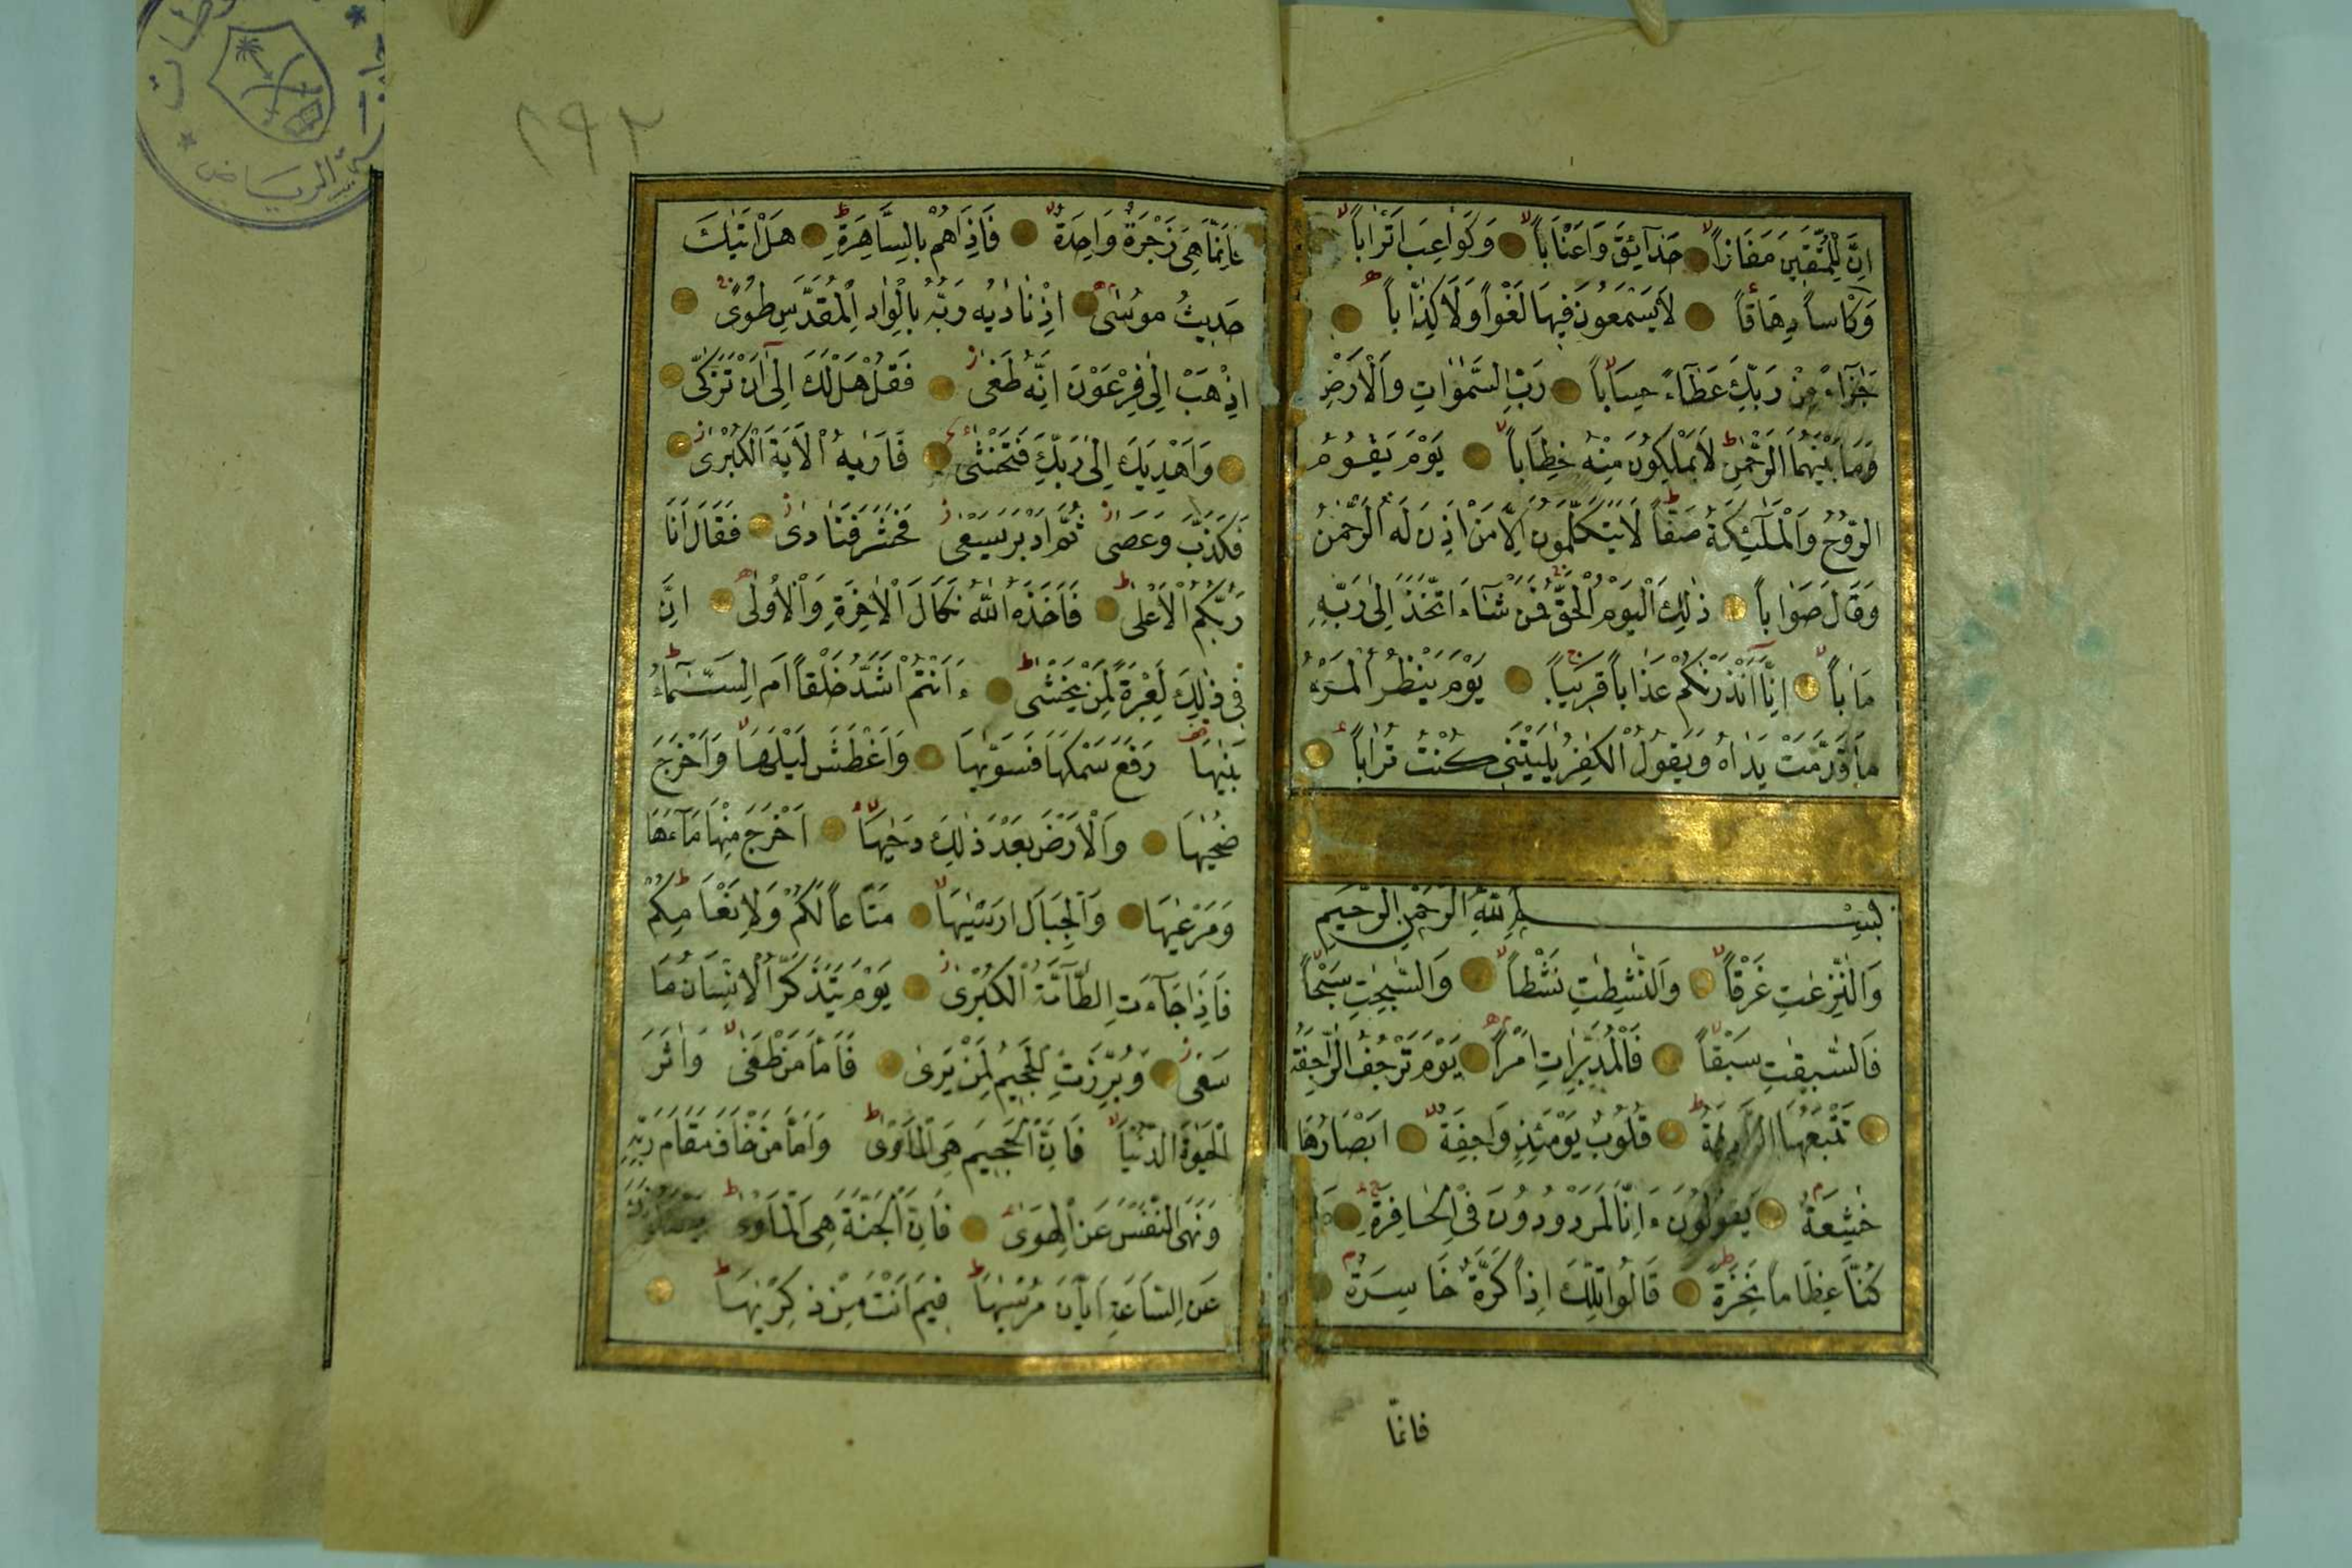 اِنَّ لِلْمُتَّقِينَ مَفَازاً حَدَآئِقَ وَاَعْنَاباً وَكَوَاعِبَ اَتْرَاباً
وَكَاْساً دِهَاقاً لَا يَسْمَعُونَ فِيهَا لَغْواً وَلَا كِذَّاباً
جَزَآءً مِنْ رَبِّكَ عَطَآءً حِسَاباً رَبِّ السَّمٰوَاتِ وَالْاَرْضِ
وَمَا بَيْنَهُمَا الرَّحْمٰنِ لَا يَمْلِكُونَ مِنْهُ خِطَاباً يَوْمَ يَقُومُ
الرُّوحُ وَالْمَلٰٓئِكَةُ صَفّاً لَا يَتَكَلَّمُونَ اِلَّا مَنْ اَذِنَ لَهُ الرَّحْمٰنُ
وَقَالَ صَوَاباً ذٰلِكَ الْيَوْمُ الْحَقُّ فَمَنْ شَآءَ اتَّخَذَ اِلٰى رَبِّهِ
مَاٰباً اِنَّا اَنْذَرْنٰكُمْ عَذَاباً قَرِيباً يَوْمَ يَنْظُرُ الْمَرْءُ
مَا قَدَّمَتْ يَدَاهُ وَيَقُولُ الْكَافِرُ يٰلَيْتَنِى كُنْتُ تُرَاباً
بِسْمِ اللّٰهِ الرَّحْمٰنِ الرَّحِيمِ
وَالنّٰزِعٰتِ غَرْقاً وَالنّٰشِطٰتِ نَشْطاً وَالسّٰبِحٰتِ سَبْحاً
فَالسّٰبِقٰتِ سَبْقاً فَالْمُدَبِّرٰتِ اَمْراً يَوْمَ تَرْجُفُ الرَّاجِفَةُ
تَتْبَعُهَا الرَّادِفَةُ قُلُوبٌ يَوْمَئِذٍ وَاجِفَةٌ اَبْصَارُهَا
خٰشِعَةٌ يَقُولُونَ ءَاِنَّا لَمَرْدُودُونَ فِى الْحَافِرَةِ
كُنَّا عِظَاماً نَخِرَةً قَالُوا تِلْكَ اِذاً كَرَّةٌ خَاسِرَةٌ
فانما
فَاِنَّمَا هِىَ زَجْرَةٌ وَاحِدَةٌ فَاِذَا هُمْ بِالسَّاهِرَةِ هَلْ اَتٰيكَ
حَدِيثُ مُوسٰى اِذْ نَادٰيهُ رَبُّهُ بِالْوَادِ الْمُقَدَّسِ طُوًى
اِذْهَبْ اِلٰى فِرْعَوْنَ اِنَّهُ طَغٰى فَقُلْ هَلْ لَكَ اِلٰٓى اَنْ تَزَكّٰى
وَاَهْدِيَكَ اِلٰى رَبِّكَ فَتَخْشٰى فَاَرٰيهُ الْاٰيَةَ الْكُبْرٰى
فَكَذَّبَ وَعَصٰى ثُمَّ اَدْبَرَ يَسْعٰى فَحَشَرَ فَنَادٰى فَقَالَ اَنَا
رَبُّكُمُ الْاَعْلٰى فَاَخَذَهُ اللّٰهُ نَكَالَ الْاٰخِرَةِ وَالْاُولٰى اِنَّ
فِى ذٰلِكَ لَعِبْرَةً لِمَنْ يَخْشٰى ءَاَنْتُمْ اَشَدُّ خَلْقاً اَمِ السَّمَآءُ
بَنٰيهَا رَفَعَ سَمْكَهَا فَسَوّٰيهَا وَاَغْطَشَ لَيْلَهَا وَاَخْرَجَ
ضُحٰيهَا وَالْاَرْضَ بَعْدَ ذٰلِكَ دَحٰيهَا اَخْرَجَ مِنْهَا مَآءَهَا
وَمَرْعٰيهَا وَالْجِبَالَ اَرْسٰيهَا مَتَاعاً لَكُمْ وَلِاَنْعَامِكُمْ
فَاِذَا جَآءَتِ الطَّآمَّةُ الْكُبْرٰى يَوْمَ يَتَذَكَّرُ الْاِنْسَانُ مَا
سَعٰى وَبُرِّزَتِ الْجَحِيمُ لِمَنْ يَرٰى فَاَمَّا مَنْ طَغٰى وَاٰثَرَ
الْحَيٰوةَ الدُّنْيَا فَاِنَّ الْجَحِيمَ هِىَ الْمَاْوٰى وَاَمَّا مَنْ خَافَ مَقَامَ رَبِّهِ
وَنَهَى النَّفْسَ عَنِ الْهَوٰى فَاِنَّ الْجَنَّةَ هِىَ الْمَاْوٰى
عَنِ السَّاعَةِ اَيَّانَ مُرْسٰيهَا فِيمَ اَنْتَ مِنْ ذِكْرٰيهَا
٢٩٢
الرياض